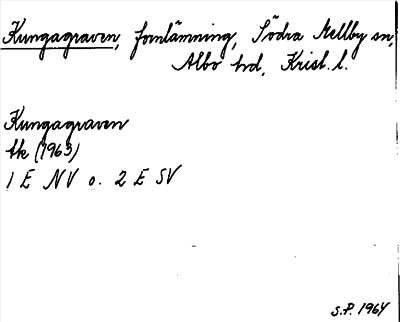 Kungagraven, fornlämning, Södra Mellby sn,
Albo hd, Krist. l.
Kungagraven
tk (1963)
1 E NV o. 2 E SV
S.P. 1964